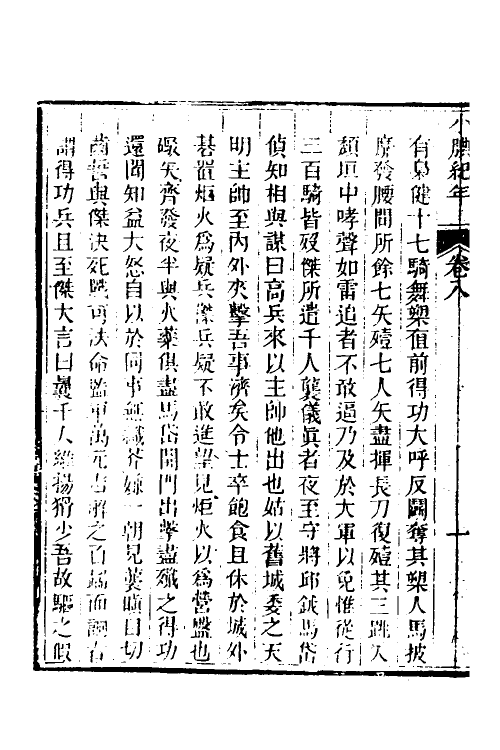 小腆紀年 卷八 一
有梟健十七騎舞槊直前得功大呼反鬭奪其槊人馬披
靡發腰間所餘七矢殪七人矢盡揮長刀復殪其三跳入
頹垣中哮聲如雷追者不敢逼乃及於大軍以免惟從行
三百騎皆歿傑所遣千人襲儀眞者夜至守將邱鉞馬岱
偵知相與謀曰高兵來以主帥他出也姑以舊城委之天
明主帥至內外夾擊吾事濟矣令士卒飽食且休於城外
碁置炬火爲疑兵傑兵疑不敢進望見炬火以爲營盤也
礮矢齊發夜半與火藥俱盡馬岱開門出擊盡殲之得功
還聞知益大怒自以於同事無纖芥嫌一朝見襲瞋目切
齒誓與傑決死戰可法命監軍萬元吉解之
謂得功兵且至傑大言曰襲千人維揚猾少吾故驅之假